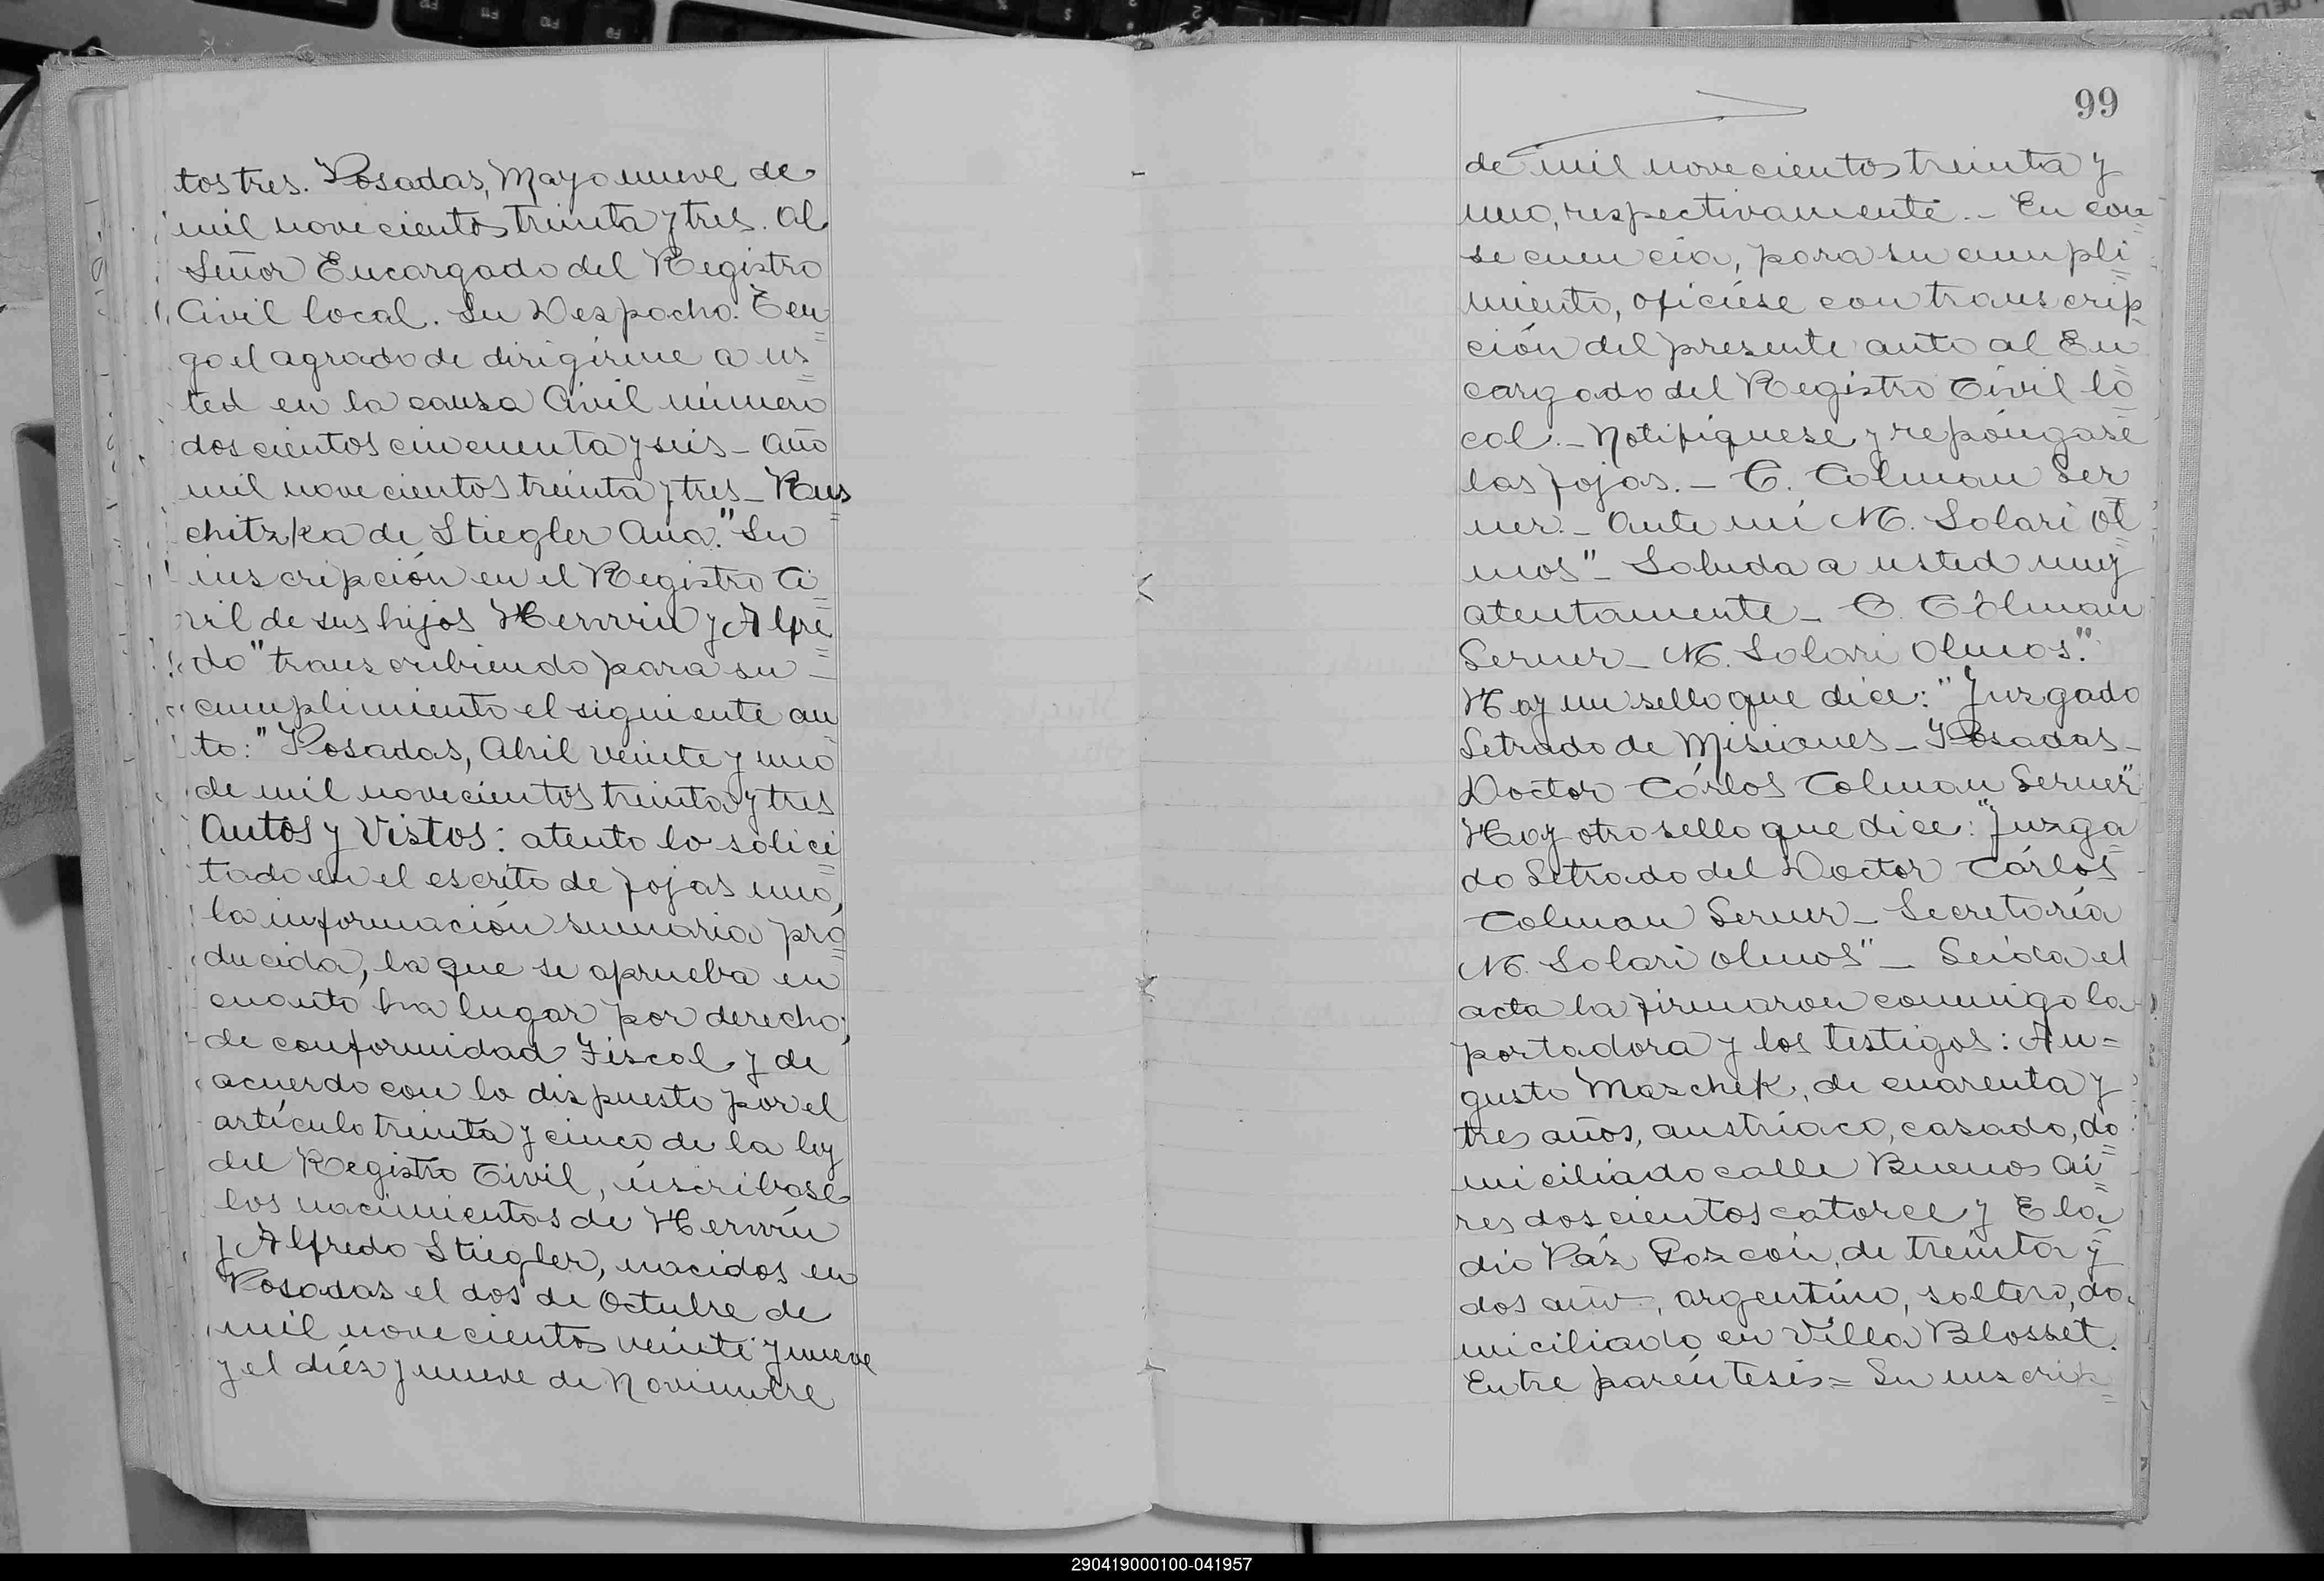 tos tres. Posadas, Mayo nueve de
mil novecientos treinta y tres. Al
Señor Encargado del Registro
Civil local. Su Despacho. Ten=
go el agrado de dirigirme a us=
ted en la causa Civil número
doscientos cincuenta y seis - Año
mil novecientos treinta y tres - Rus=
chitzka de Stiegler Ana." Su
inscripción en el Registro Ci=
vil de sus hijos Herwin y Alfre=
do" transcribiendo para su -
cumplimiento el siguiente au=
to: "Posadas, Abril veinte y uno
de mil novecientos treinta y tres
Autos y Vistos: atento lo solici=
tado en el escrito de fojas uno,
la información sumaria pro=
ducida, la que se aprueba en
cuanto ha lugar por derecho;
de conformidad Fiscal y de
acuerdo con lo dispuesto por el
artículo treinta y cinco de la ley
del Registro Civil, inscríbase
los nacimientos de Herwin
y Alfredo Stiegler, nacidos en
Posadas el dos de Octubre de
mil novecientos veinte y nueve
y el diéz y nueve de Noviembre
99
de mil novecientos treinta y
uno, respectivamente. - En con=
secuencia, para su cumpli=
miento, ofíciese con transcrip=
ción del presente auto al En=
cargado del Registro Civil lo=
cal. - Notifíquese y repóngase
las fojas. - C. Colman Ler=
ner. - Ante mí M. Solari Ol=
mos" - Saluda a usted muy
atentamente - C. Colman
Lerner - M. Solari Olmos."
Hay un sello que dice: "Juzgado
Letrado de Misiones - Posadas -
Doctor Cárlos Colman Lerner"
Hay otro sello que dice: "Juzga=
do Letrado del Doctor Cárlos
Colman Lerner - Secretaría
M. Solari Olmos" - Leída el
acta la firmaron conmigo la
portadora y los testigos: Au=
gusto Maschek, de cuarenta y
tres años, austríaco, casado, do=
miciliado calle Buenos Ai=
res doscientos catorce y Ela=
dio Páz de treinta y
dos años, argentino, soltero, do=
miciliado en Villa Blosset.
Entre paréntesis = Su inscrip=
290419000100-041957